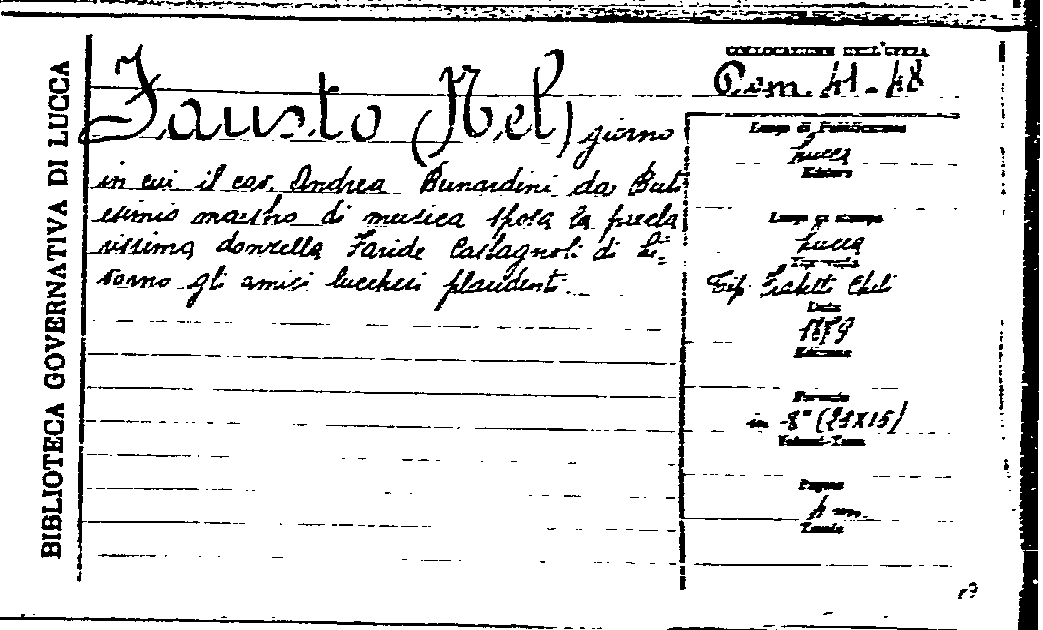 BIBLIOTECA GOVERNATIVA DI LUCCA
COLLOCAZIONE DELL'OPERA
Fausto (Nel) giorno
in cui il cav. Andrea Bernardini da Buti
esimio maestro di musica sposa la precla
rissima donzella Faride Castagnoli di Li=
vorno gli amici lucchesi plaudenti.
Luogo di Pubblicazione
Lucca
Editore
Luogo di stampa
Lucca
Tipografia
Tip. Fratelli Cheli
Data
1879
Edizione
Formato
in -8° (21X15)
Volumi-Tomo
Pagine
Tavole